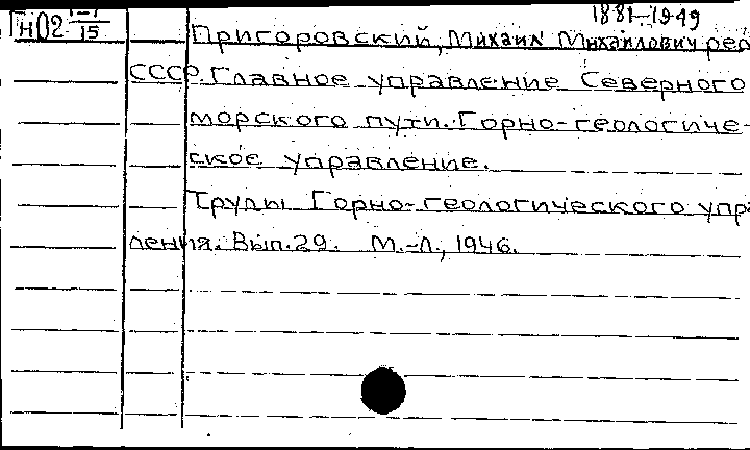 1881-1949
ГН02 15
Пригоровский, Михаил Михайлович ред
СССР. Главное управление Северного
морского пути. Горно-геологиче-
ское управление.
Труды Горно-геологического упра
ления. Вып. 29. М.-Л., 1946.